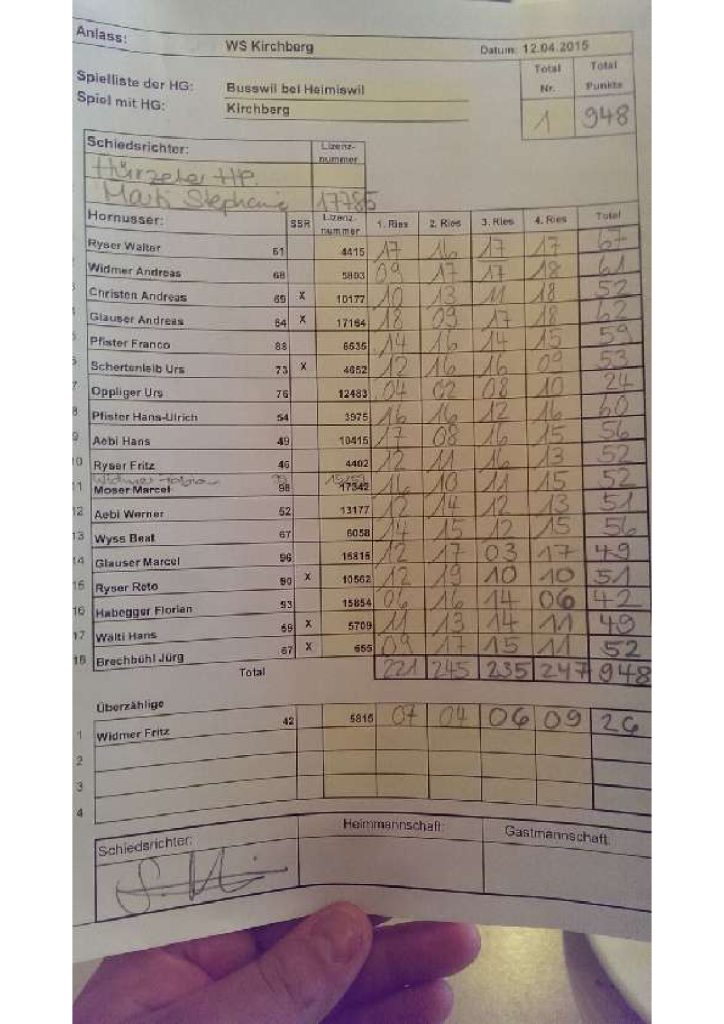 Anlass: WS Kirchberg Datum: 12.04.2015
Total Total
Spielliste der HG: Busswil bei Heimiswil Nr. Punkte
Spiel mit HG: Kirchberg 1 948
Schiedsrichter: Lizenz-
nummer
Hürzeler HP.
Marti Stephanie 17785
Hornusser: SSR Lizenz-nummer 1. Ries 2. Ries 3. Ries 4. Ries Total
Ryser Walter 61 4415 17 16 17 17 67
Widmer Andreas 68 5803 09 17 17 18 61
Christen Andreas 69 X 10177 10 13 11 18 52
Glauser Andreas 64 X 17164 18 09 17 18 62
5 Pfister Franco 88 6635 14 16 14 15 59
6 Schertenleib Urs 73 X 4652 12 16 16 09 53
7 Oppliger Urs 76 12483 04 02 08 10 24
8 Pfister Hans-Ulrich 54 3975 16 16 12 16 60
9 Aebi Hans 49 10415 17 08 16 15 56
10 Ryser Fritz 46 4402 12 11 16 13 52
Widmer Fabian 99
11 Moser Marcel 98 17342 16 10 11 15 52
12 Aebi Werner 52 13177 12 14 12 13 51
13 Wyss Beat 67 6058 14 15 12 15 56
14 Glauser Marcel 96 15815 12 17 03 17 49
15 Ryser Reto 90 X 10562 12 19 10 10 51
16 Habegger Florian 93 15854 06 16 14 06 42
17 Wälti Hans 69 X 5709 11 13 14 11 49
18 Brechbühl Jürg 67 X 655 09 17 15 11 52
Total 221 245 235 247 948
Überzählige
1 Widmer Fritz 42 5815 07 04 06 09 26
2
3
4
Schiedsrichter: Heimmannschaft: Gastmannschaft: